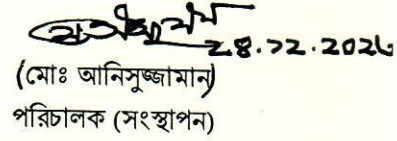 ২৪.১২.২০২৬
(মোঃ আনিসুজ্জামান)
পরিচালক (সংস্থাপন)